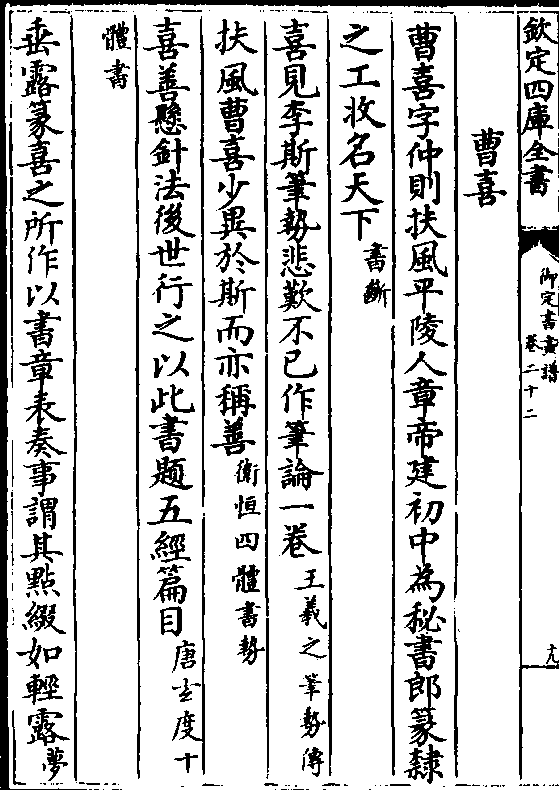 欽定四庫全書
御定書畫譜
卷二十二
十九
曹喜
曹喜字仲則扶風平陵人章帝建初中為秘書郎篆隸
之工收名天下書斷
喜見李斯筆勢悲歎不已作筆論一卷王羲之筆勢傳
扶風曹喜少異於斯而亦稱善衛恒四體書勢
喜善懸針法後世行之以此書題五經篇目唐玄度十
體書
垂露篆喜之所作以書章表奏事謂其點綴如輕露夢